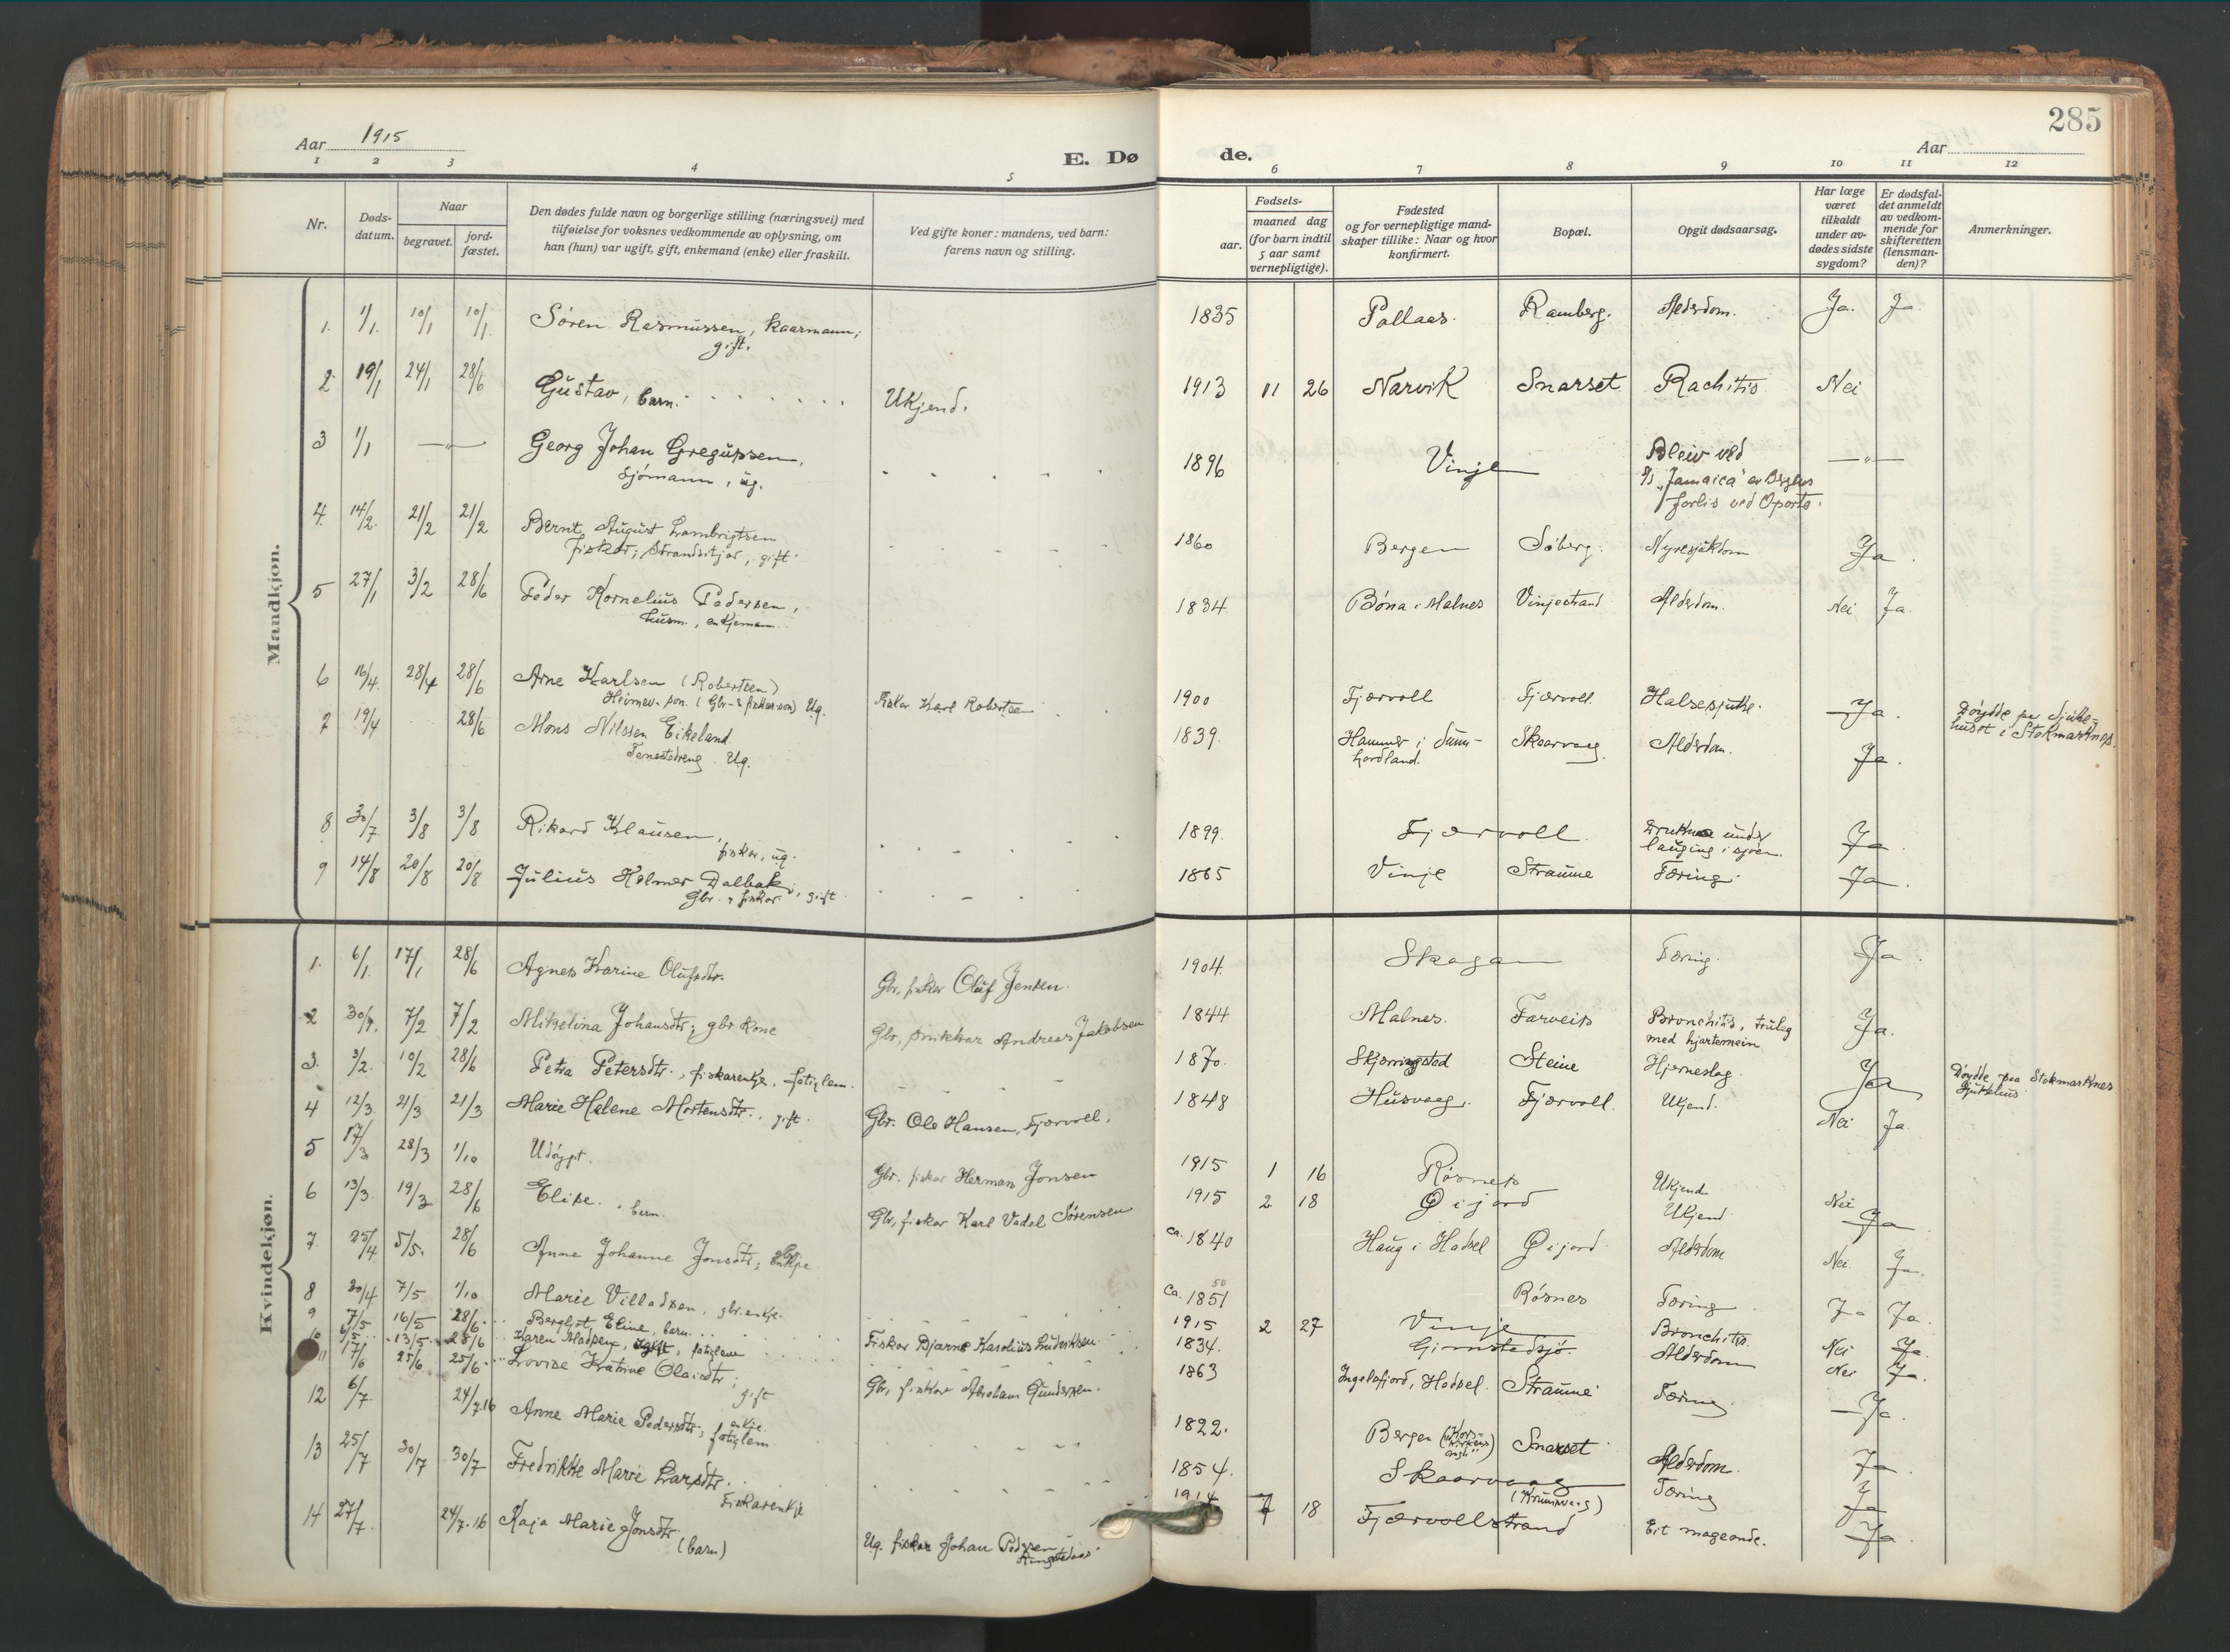 285
Aar 1915
E. Dø
de.
Aar
1 2 3 4 5 6 7 8 9 10 11 12
Nr.
Døds-
datum.
Naar
begravet.
jord-
fæstet.
Den dødes fulde navn og borgerlige stilling (næringsvei) med
tilføielse for voksnes vedkommende av oplysning, om
han (hun) var ugift, gift, enkemand (enke) eller fraskilt.
Ved gifte koner: mandens, ved barn:
farens navn og stilling.
Fødsels-
aar.
maaned dag
(for barn indtil
5 aar samt
vernepligtige).
Fødested
og for vernepligtige mand-
skaper tillike: Naar og hvor
konfirmert.
Bopæl.
Opgit dødsaarsag.
Har læge
været
tilkaldt
under av-
dødes sidste
sygdom?
Er dødsfal-
det anmeldt
av vedkom-
mende for
skifteretten
(lensman-
den)?
Anmerkninger.
Mandkjøn.
1. 1/1. 10/1 10/1. Søren Rasmussen, kaarmann, 1835 Pollaas. Ramberg. Alderdom. Ja. Ja
gift.
2 19/1 24/1 28/6 Gustav, barn. Ukjend. 1913 11 26 Narvik Snarset Rachitis Nei
3 1/1 —"— Georg Johan Gregussen, 1896 Vinje Bleiv ved —"—
sjømann, ug. "Jamaica" av Bergens
forlis ved Oporto.
4. 14/2. 21/2 21/2 Bernt August Lambrigtsen 1860 Bergen Søberg. Nyresjukdom Ja.
fiskar, strandsitjar, gift.
5 27/1 3/2 28/6 Peder Kornelius Pedersen, 1834. Bøna i Malnes Vinjestrand Alderdom. Nei Ja.
husm., enkjemann.
6 16/4. 28/4 28/6 Arne Karlsen (Robertsen) Fiskar Karl Robertsen 1900 Fjærvoll Fjærvoll. Halsesjuke. Ja. Døydde pa Sjuke-
Heimev. son. (Gbr- & fiskarson) Ug. huset i Stokmarknes.
7 19/4 28/6 Mons Nilssen Eikeland 1839. Hammer i Sunn- Skaarvaag. Alderdom. Ja.
Tenestedreng. Ug. hordland.
8 30/7 3/8 3/8 Rikard Klausen, 1899. Fjærvoll. Druknee under Ja
fiskar, ug. lauging i sjøen.
9 14/8 20/8 20/8 Julius Holmer Dalbak, gift. 1865 Vinje Straume Tæring. Ja.
Gbr. & fiskar.
Kvindekjøn.
1. 6/1. 17/1 28/6 Agnes Karine Olufsdtr. Gbr, fiskar Oluf Jensen. 1904. Skagen Tæring. Ja
2 30/1. 7/2 7/2 Mikelina Johansdtr, gbr kone Gbr, snikkar Andreas Jakobsen 1844 Malnes. Farveis Bronchitis, truleg Ja.
med hjartemein
3. 3/2. 10/2 28/6 Petra Petersdtr., fiskarenkje, fatiglem. 1870. Skjærringstad Steine Hjerneslag. Ja Døydde paa Stokmarknes
Sjukehus.
4 12/3. 21/3 21/3 Marie Helene Mortensdtr., gift. Gbr. Ole Hansen, Fjærvoll. 1848 Husvaag. Fjærvoll. Ukjend. Nei Ja
5 17/3 28/3 1/10 Udøypt. Gbr. fiskar Herman Jonsen 1915 1 16 Røsnes Ukjend Nei
6 13/3. 19/3 28/6 Elise., barn. Gbr, fiskar Karl Vadel Sørensen 1915 2 18 Øijord Ukjend Ja
7. 25/4 5/5. 28/6 Anne Johanne Jonsdtr, Enkje ca. 1840 Haug i Hadsel Øijord Alderdom Nei Ja.
8 30/4 7/5 1/10 Marie Villadsen, gbr.enkje. ca. 1851 50 Røsnes Tæring Ja Ja.
9 7/5 16/5 28/6 Bergljot Eline, barn. Fiskar Bjarne Karolius Ludviksen 1915 2 27 Vinje Bronchitis. Nei Ja
10 13/5 28/6 Karen Madsen, fatiglem 1834. Gimstadsjø. Alderdom Nei Ja.
11 17/6 25/6 25/6 Lovise Katrine Olaisdtr, gift Gbr, fiskar Abraham Gundersen. 1863 Ingelsfjord, Hadsel. Straume Tæring Ja.
12 6/7. 24/7.16 Anne Marie Pedersdtr, enkje. fatiglem 1822. Bergen Snarset Alderdom. Ja
13 25/7 30/7 30/7 Fredrikke Marie Larsdtr. 1854. Skaarvaag Tæring Ja
Fiskarenkje
14 27/7. 24/7.16 Kaja Marie Jonsdtr (barn) Ug. fiskar Johan Pedersen 1914 7 18 Fjærvollstrand Eit mageonde. Ja